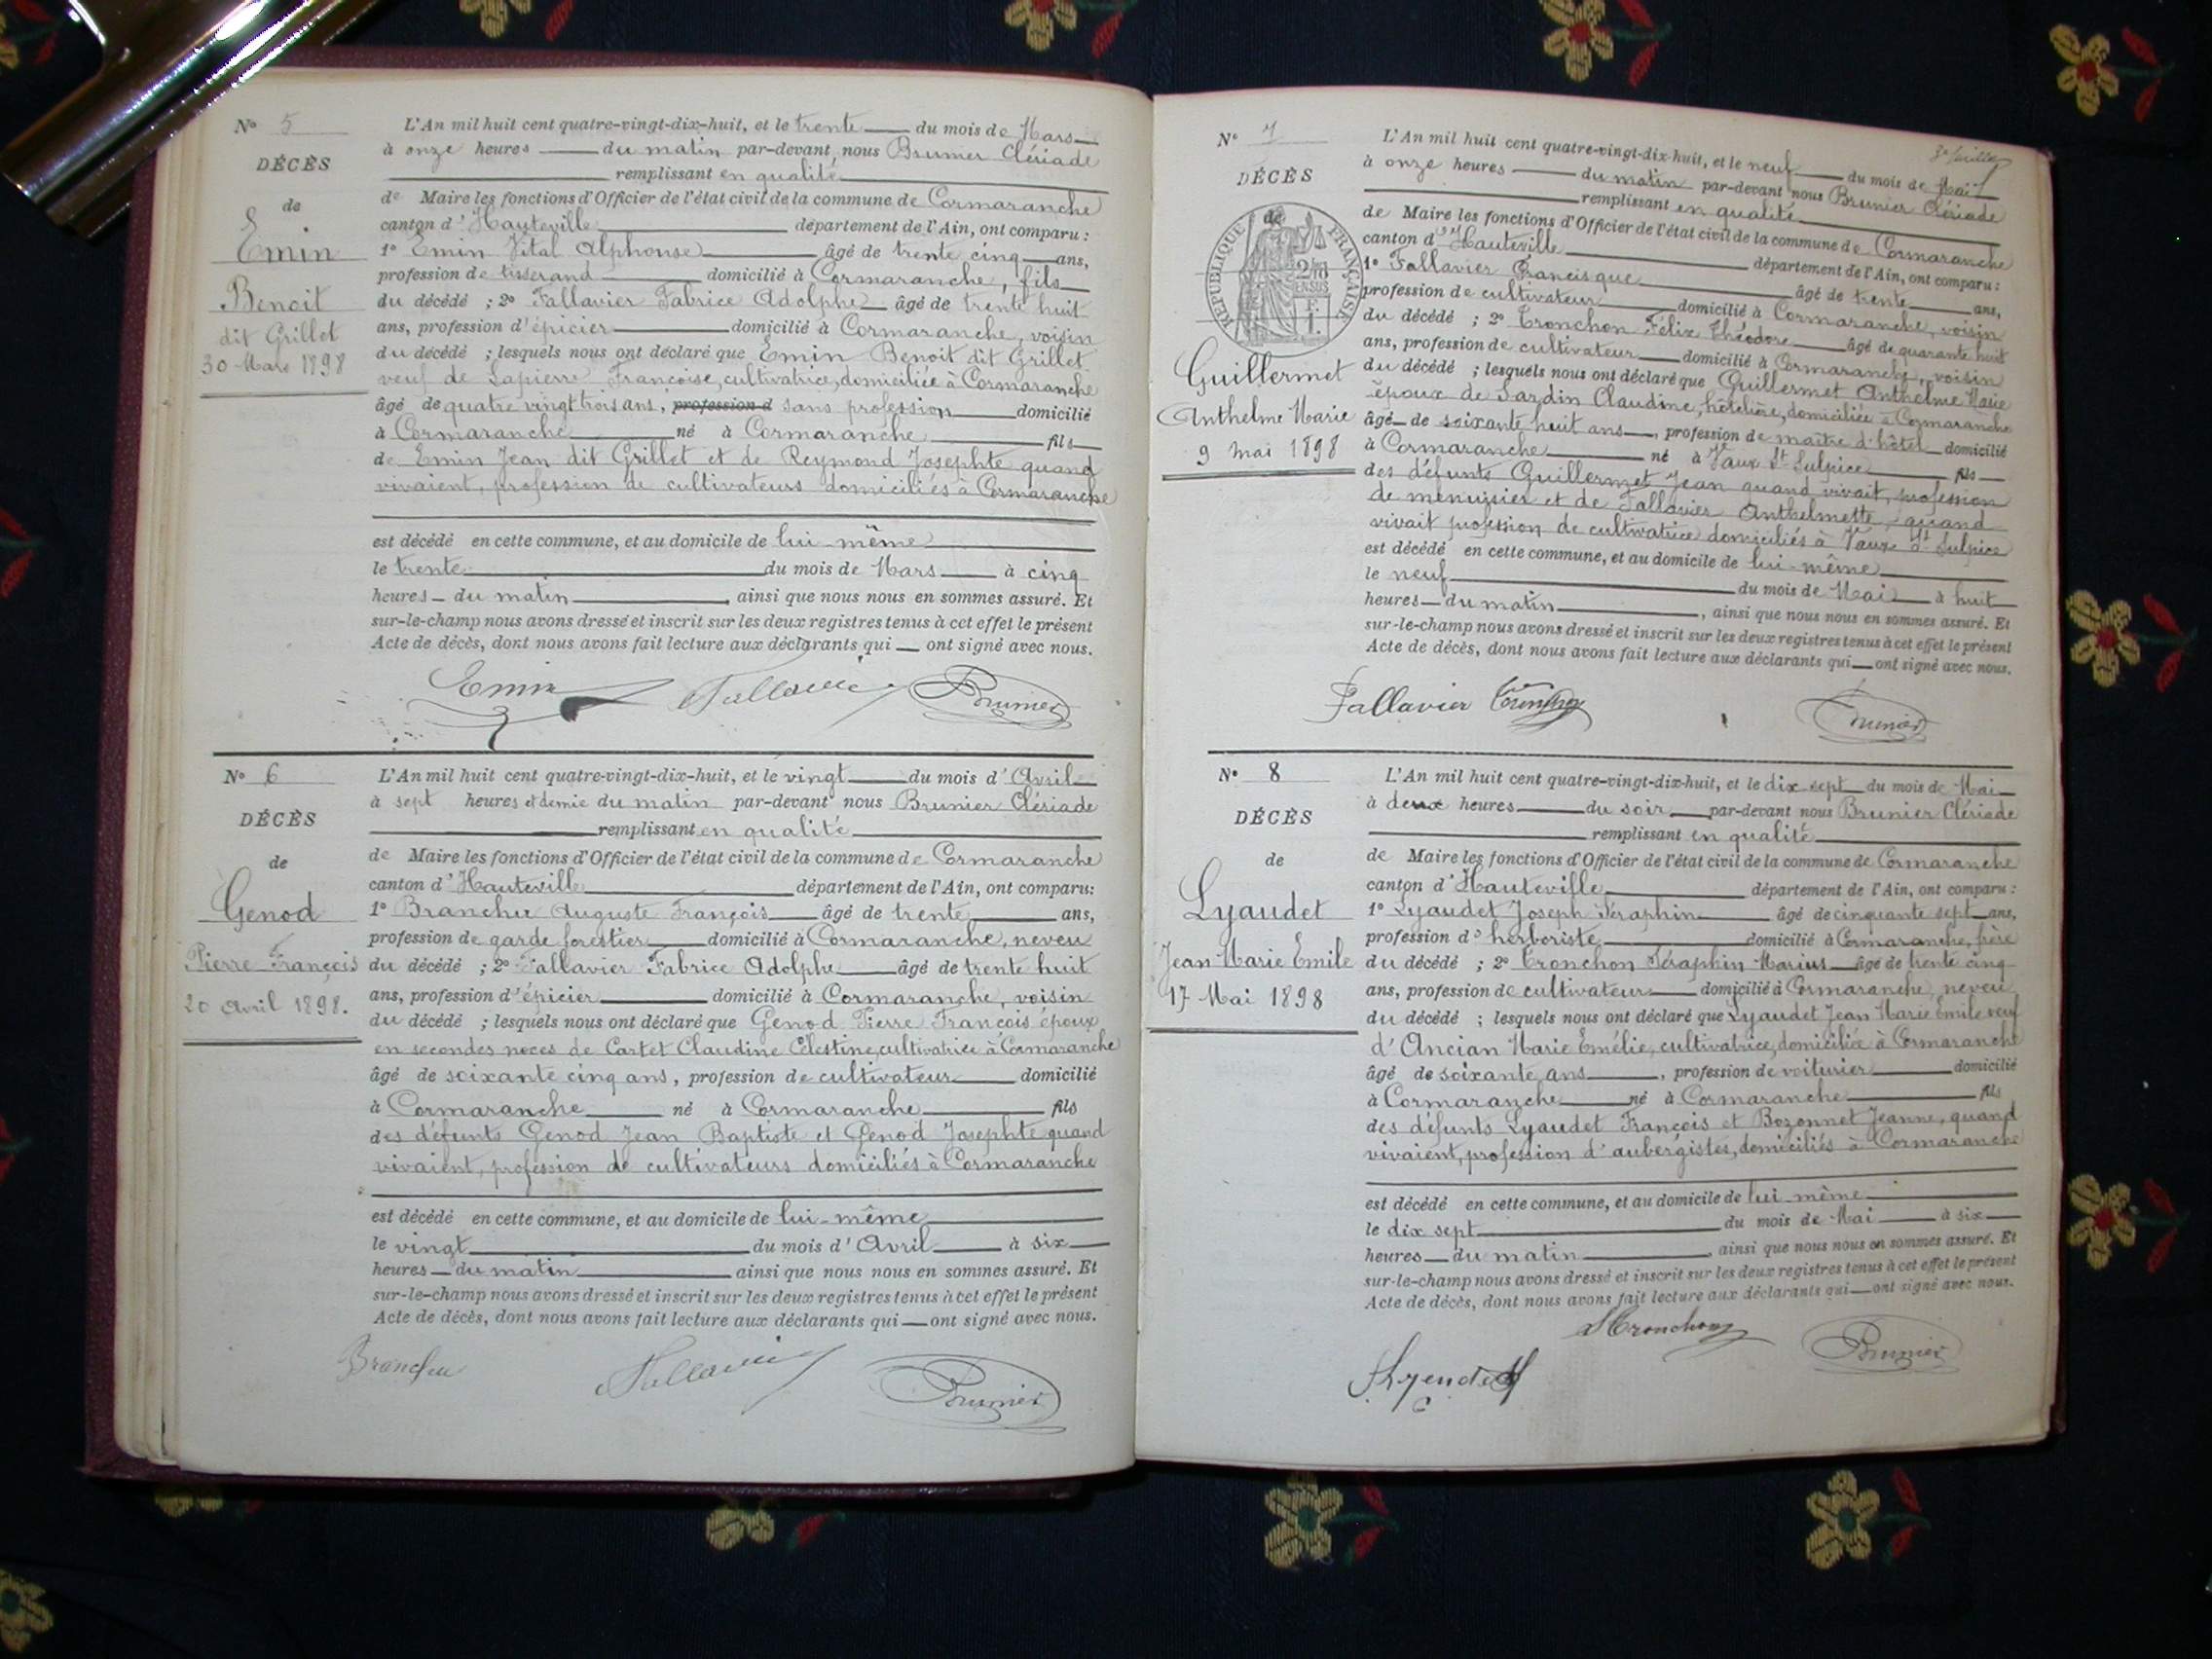 N° 5
DÉCÈS
de
Emin
Benoit
dit Grillet
30 Mars 1898
L'An mil huit cent quatre-vingt-dix-huit, et le trente du mois de Mars
à onze heures du matin par-devant nous Brunier Clériade
remplissant en qualité
de Maire les fonctions d'Officier de l'état civil de la commune de Cormaranche
canton d'Hauteville département de l'Ain, ont comparu :
1° Emin Vital Alphonse âgé de trente cinq ans,
profession de tisserand domicilié à Cormaranche, fils
du décédé ; 2° Fallavier Fabrice Adolphe âgé de trente huit
ans, profession d'épicier domicilié à Cormaranche, voisin
du décédé ; lesquels nous ont déclaré que Emin Benoit dit Grillet
veuf de Lapierre Françoise, cultivatrice, domiciliée à Cormaranche
âgé de quatre vingt trois ans, profession d sans profession domicilié
à Cormaranche né à Cormaranche fils
de Emin Jean dit Grillet et de Reymond Josephte quand
vivaient, profession de cultivateurs domiciliés à Cormaranche
est décédé en cette commune, et au domicile de lui-même
le trente du mois de Mars à cinq
heures du matin, ainsi que nous nous en sommes assuré. Et
sur-le-champ nous avons dressé et inscrit sur les deux registres tenus à cet effet le présent
Acte de décès, dont nous avons fait lecture aux déclarants qui ont signé avec nous.
Emin Fallavier Brunier
N° 6
DÉCÈS
de
Genod
Pierre François
20 Avril 1898.
L'An mil huit cent quatre-vingt-dix-huit, et le vingt du mois d'Avril
à sept heures et demie du matin par-devant nous Brunier Clériade
remplissant en qualité
de Maire les fonctions d'Officier de l'état civil de la commune de Cormaranche
canton d'Hauteville département de l'Ain, ont comparu:
1° Branchu Auguste François âgé de trente ans,
profession de garde forestier domicilié à Cormaranche, neveu
du décédé ; 2° Fallavier Fabrice Adolphe âgé de trente huit
ans, profession d'épicier domicilié à Cormaranche, voisin
du décédé ; lesquels nous ont déclaré que Genod Pierre François époux
en secondes noces de Cartet Claudine Célestine, cultivatrice à Cormaranche
âgé de soixante cinq ans, profession de cultivateur domicilié
à Cormaranche né à Cormaranche fils
des défunts Genod Jean Baptiste et Genod Josephte quand
vivaient, profession de cultivateurs domiciliés à Cormaranche
est décédé en cette commune, et au domicile de lui-même
le vingt du mois d'Avril à six
heures du matin ainsi que nous nous en sommes assuré. Et
sur-le-champ nous avons dressé et inscrit sur les deux registres tenus à cet effet le présent
Acte de décès, dont nous avons fait lecture aux déclarants qui ont signé avec nous.
Branchu Fallavier Brunier
N° 7
DÉCÈS
de
RÉPUBLIQUE FRANÇAISE
Guillermet
Anthelme Marie
9 mai 1898
L'An mil huit cent quatre-vingt-dix-huit, et le neuf du mois de Mai
à onze heures du matin par-devant nous Brunier Clériade
remplissant en qualité
de Maire les fonctions d'Officier de l'état civil de la commune de Cormaranche
canton d'Hauteville département de l'Ain, ont comparu :
1° Fallavier Francisque âgé de trente ans,
profession de cultivateur domicilié à Cormaranche, voisin
du décédé ; 2° Tronchon Félix Théodore âgé de quarante huit
ans, profession de cultivateur domicilié à Cormaranche, voisin
du décédé ; lesquels nous ont déclaré que Guillermet Anthelme Marie
époux de Jardin Claudine, hôtelière, domiciliée à Cormaranche
âgé de soixante huit ans, profession de maître d'hôtel domicilié
à Cormaranche né à Vaux St Sulpice fils
des défunts Guillermet Jean quand vivait, profession
de menuisier et de Fallavier Anthelmette, quand
vivait profession de cultivatrice domiciliés à Vaux St Sulpice
est décédé en cette commune, et au domicile de lui-même
le neuf du mois de Mai à huit
heures du matin, ainsi que nous nous en sommes assuré. Et
sur-le-champ nous avons dressé et inscrit sur les deux registres tenus à cet effet le présent
Acte de décès, dont nous avons fait lecture aux déclarants qui ont signé avec nous.
Fallavier Tronchon Brunier
N° 8
DÉCÈS
de
Lyaudet
Jean Marie Emile
17 Mai 1898
L'An mil huit cent quatre-vingt-dix-huit, et le dix sept du mois de Mai
à deux heures du soir par-devant nous Brunier Clériade
remplissant en qualité
de Maire les fonctions d'Officier de l'état civil de la commune de Cormaranche
canton d'Hauteville département de l'Ain, ont comparu :
1° Lyaudet Joseph Séraphin âgé de cinquante sept ans,
profession d'herboriste domicilié à Cormaranche, frère
du décédé ; 2° Tronchon Séraphin Marius âgé de trente cinq
ans, profession de cultivateur domicilié à Cormaranche, neveu
du décédé ; lesquels nous ont déclaré que Lyaudet Jean Marie Emile veuf
d'Ancian Marie Emélie, cultivatrice, domiciliée à Cormaranche
âgé de soixante ans, profession de voiturier domicilié
à Cormaranche né à Cormaranche fils
des défunts Lyaudet François et Bozonnet Jeanne, quand
vivaient, profession d'aubergistes, domiciliés à Cormaranche
est décédé en cette commune, et au domicile de lui-même
le dix sept du mois de Mai à six
heures du matin, ainsi que nous nous en sommes assuré. Et
sur-le-champ nous avons dressé et inscrit sur les deux registres tenus à cet effet le présent
Acte de décès, dont nous avons fait lecture aux déclarants qui ont signé avec nous.
Tronchon Brunier